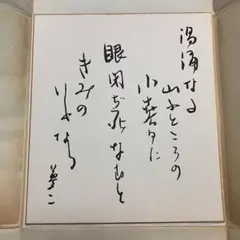 湯涌なる
山ふところの
小春日に
眼閉ぢ死なむと
きみの
いふなり
夢二